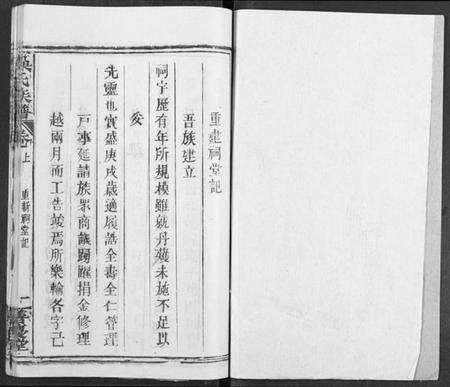 重建祠堂記
吾族建立
祠宇歷有年所規模雖就丹雘未施不足以
妥
先靈也實盛庚戌歲適履誥全壽全仁管理
戶事延請族眾商議踴躍捐金修理
越兩月而工告竣焉所樂輸各字已
氏族譜
卷上
重新祠堂記